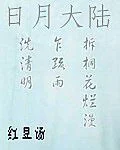 日月大陆
拆桐花烂漫
乍疏雨
洗清明
红